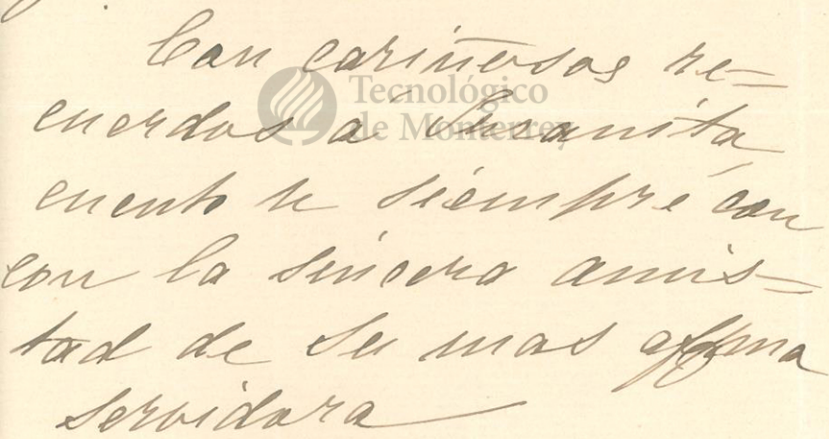 Con cariñosos re=
cuerdos a Susanita,
cuento u siempre con
con la sincera amis=
tad de su mas affma
servidora
Tecnológico
de Monterrey